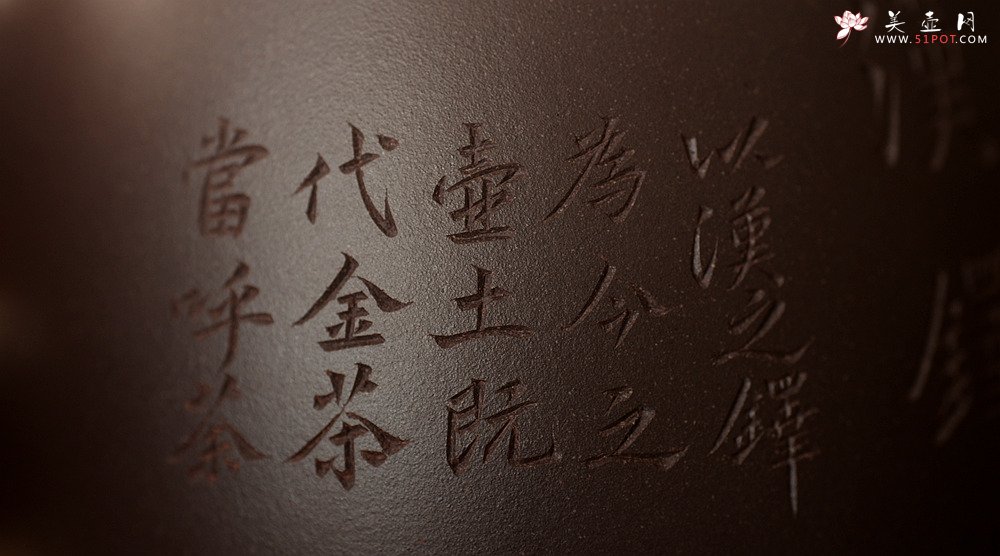 美壶网
WWW.51POT.COM
以漢之鐸
為今之
壺土既
代金茶
當呼荼